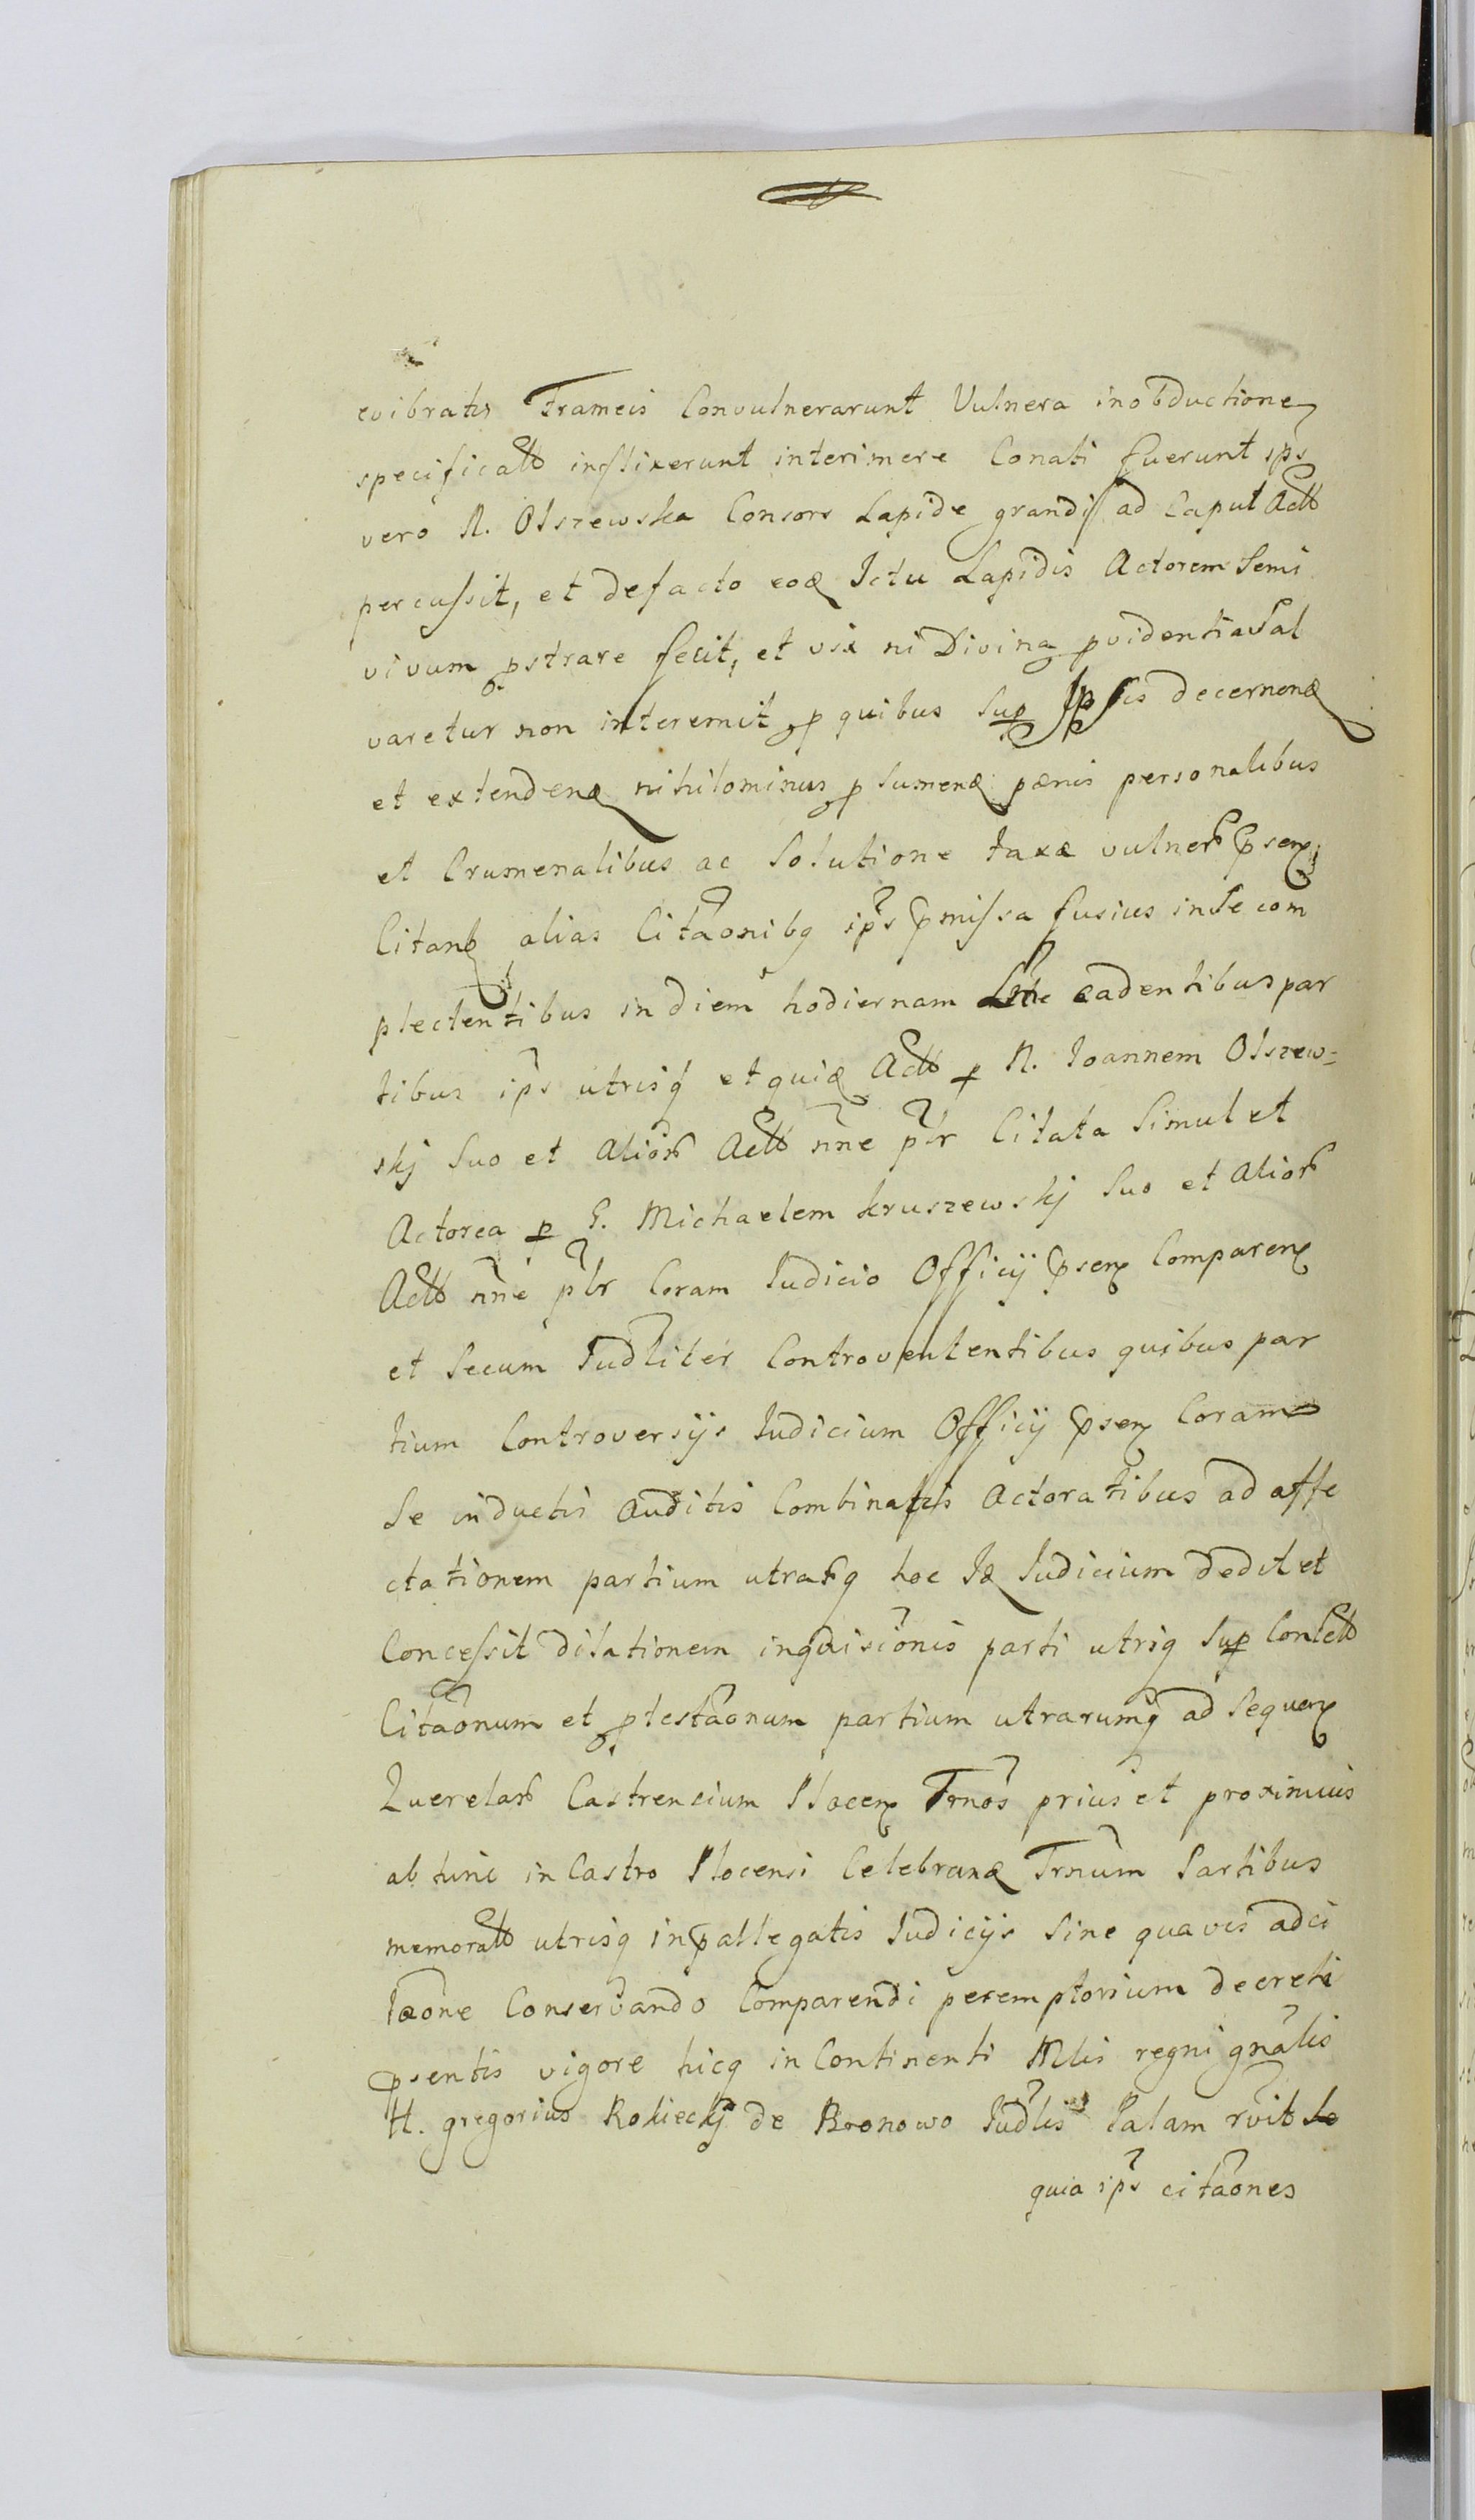 evibratis Frameis Convulnerarunt Vulnera in obductione
specificatt inflixerunt interimere Conati fuerunt ips
vero N. Olszewska Consors Lapide grandi ad Caput Actt
percussit, et defacto eoq Ictu Lapidis Actorem Semi
vivum pstrare fecit, et vix ni Divina pvidentia Sal
varetur non interemit p quibus Sup decernenq
et extendenq nihilominus p sumenq pænis personalibus
et Crumenalibus ac Solutione taxæ vulner psen
Citanq alias Citaonibq ips pmissa fusius in Se com
plectentibus in diem hodiernam cadentibus par
tibus ips utrisq et quiq Actt p N. Joannem Olszew=
skj Suo et Alior Actt nne plr Citata Simul et
Actorea p G. Michaelem Kruszewskj Suo et Alior
Actt nne plr Coram Judicio Officij psen Comparen
et Secum Judliter Controvertentibus quibus par
tium Controversijs Judicium Officij psen Coram
Se inductis Auditis Combinatis Actoratibus ad affe
ctationem partium utrarq hoc Iq Judicium dedit et
Concessit dilationem inquisicionis parti utriq Sup Contctt
Citaonum et ptestaonum partium utrarumq ad Sequen
Querelar Castrensium Plocen Trnos prius et proximius
ab hinc in Castro Plocensi Celebranq Trnum Partibus
memoratt utrisq in pallegatis Judicijs Sine quavis adci
taone Conservando Comparendi peremptorium decreti
psentis vigore hicq in Continenti Mlis regni gnalis
H. gregorius Rokieckj de Bronowo Judlis Palam rvit Se
quia ips citaones